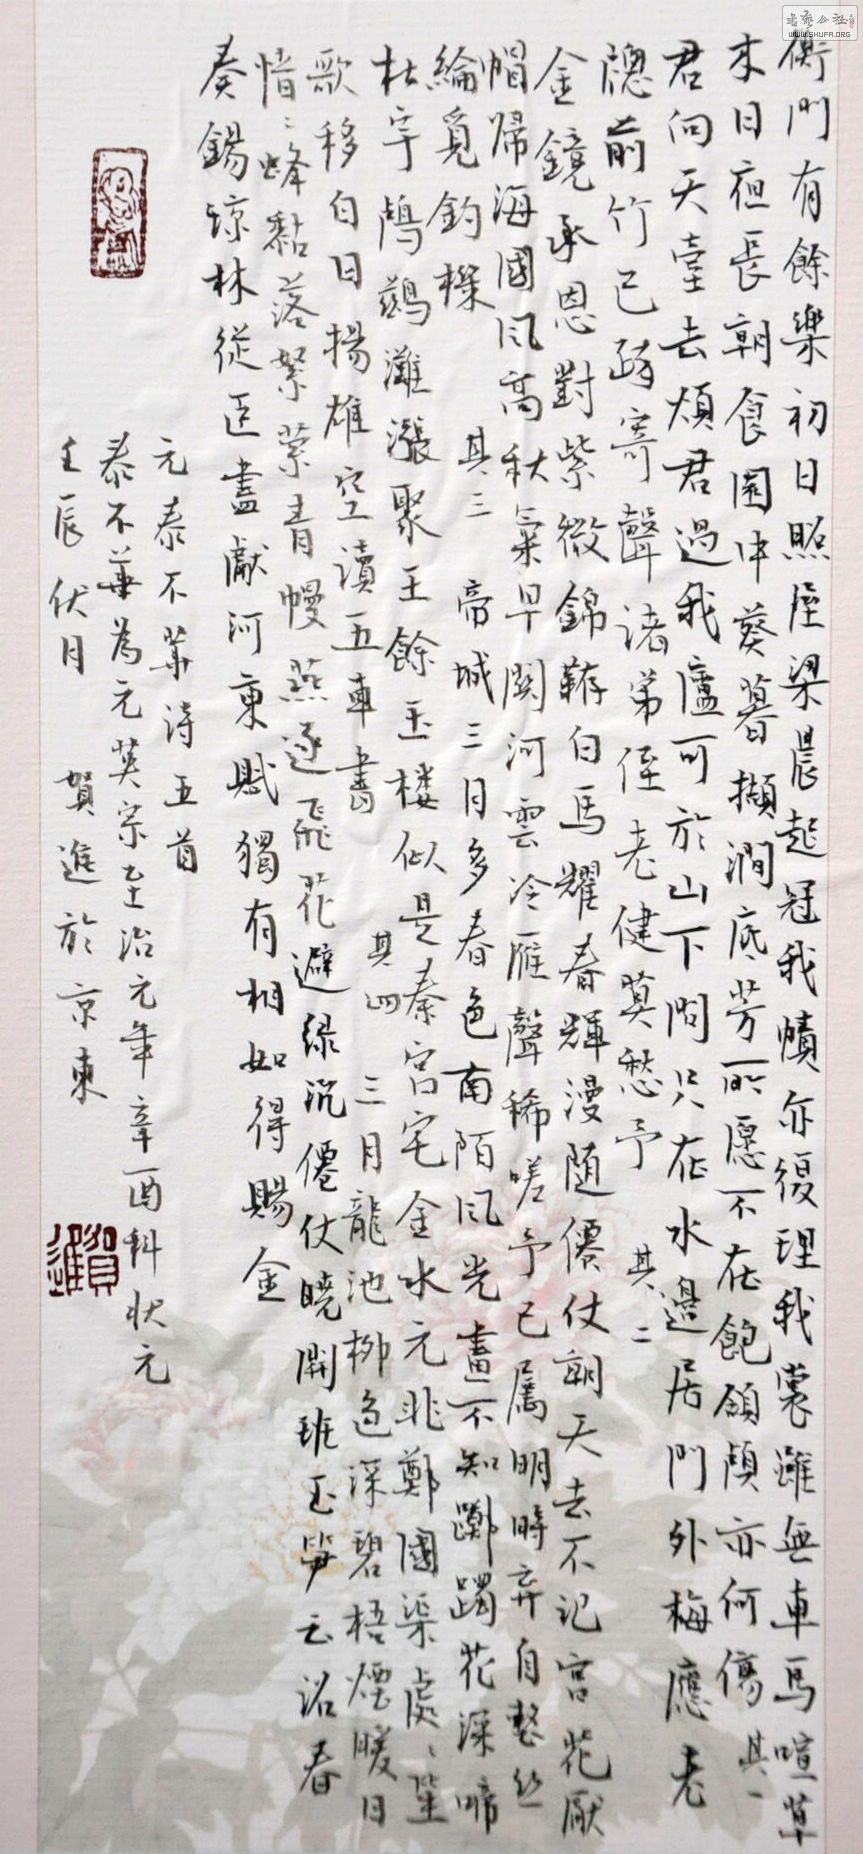 衡門有餘樂初日照屋梁晨起冠我幘亦復理我裳雖無車馬喧草
木日夜長朝食園中葵暮擷澗底芳所愿不在飽頷顑亦何傷 其一
君向天臺去煩君過我廬可於山下問只在水邊居門外梅應老
牕前竹已疏寄聲諸弟侄老健莫愁予 其二
金鏡承恩對紫微錦韉白馬耀春輝漫隨僊仗朝天去不記宮花厭
帽歸海國風高秋氣早關河雲冷雁聲稀嗟予已屬明時弃自整絲
綸覓釣槎 其三 帝城三月多春色南陌風光畫不知躑躅花深啼
杜宇鸕鷀灘漲聚王餘玉樓似是秦宮宅金水元非鄭國渠處處笙
歌移白日揚雄空讀五車書 其四 三月龍池柳色深碧梧煙暖日
愔愔蜂黏落絮縈青幔燕逐飛花避綠沉僊仗曉開班玉笋云沼春
奏錫瓊林從臣盡獻河東賦獨有相如得賜金
元泰不華詩五首
泰不華為元英宗至治元年辛酉科狀元
壬辰伏月 賀進於京東
賀進
書藝公社
WWW.SHUFA.ORG